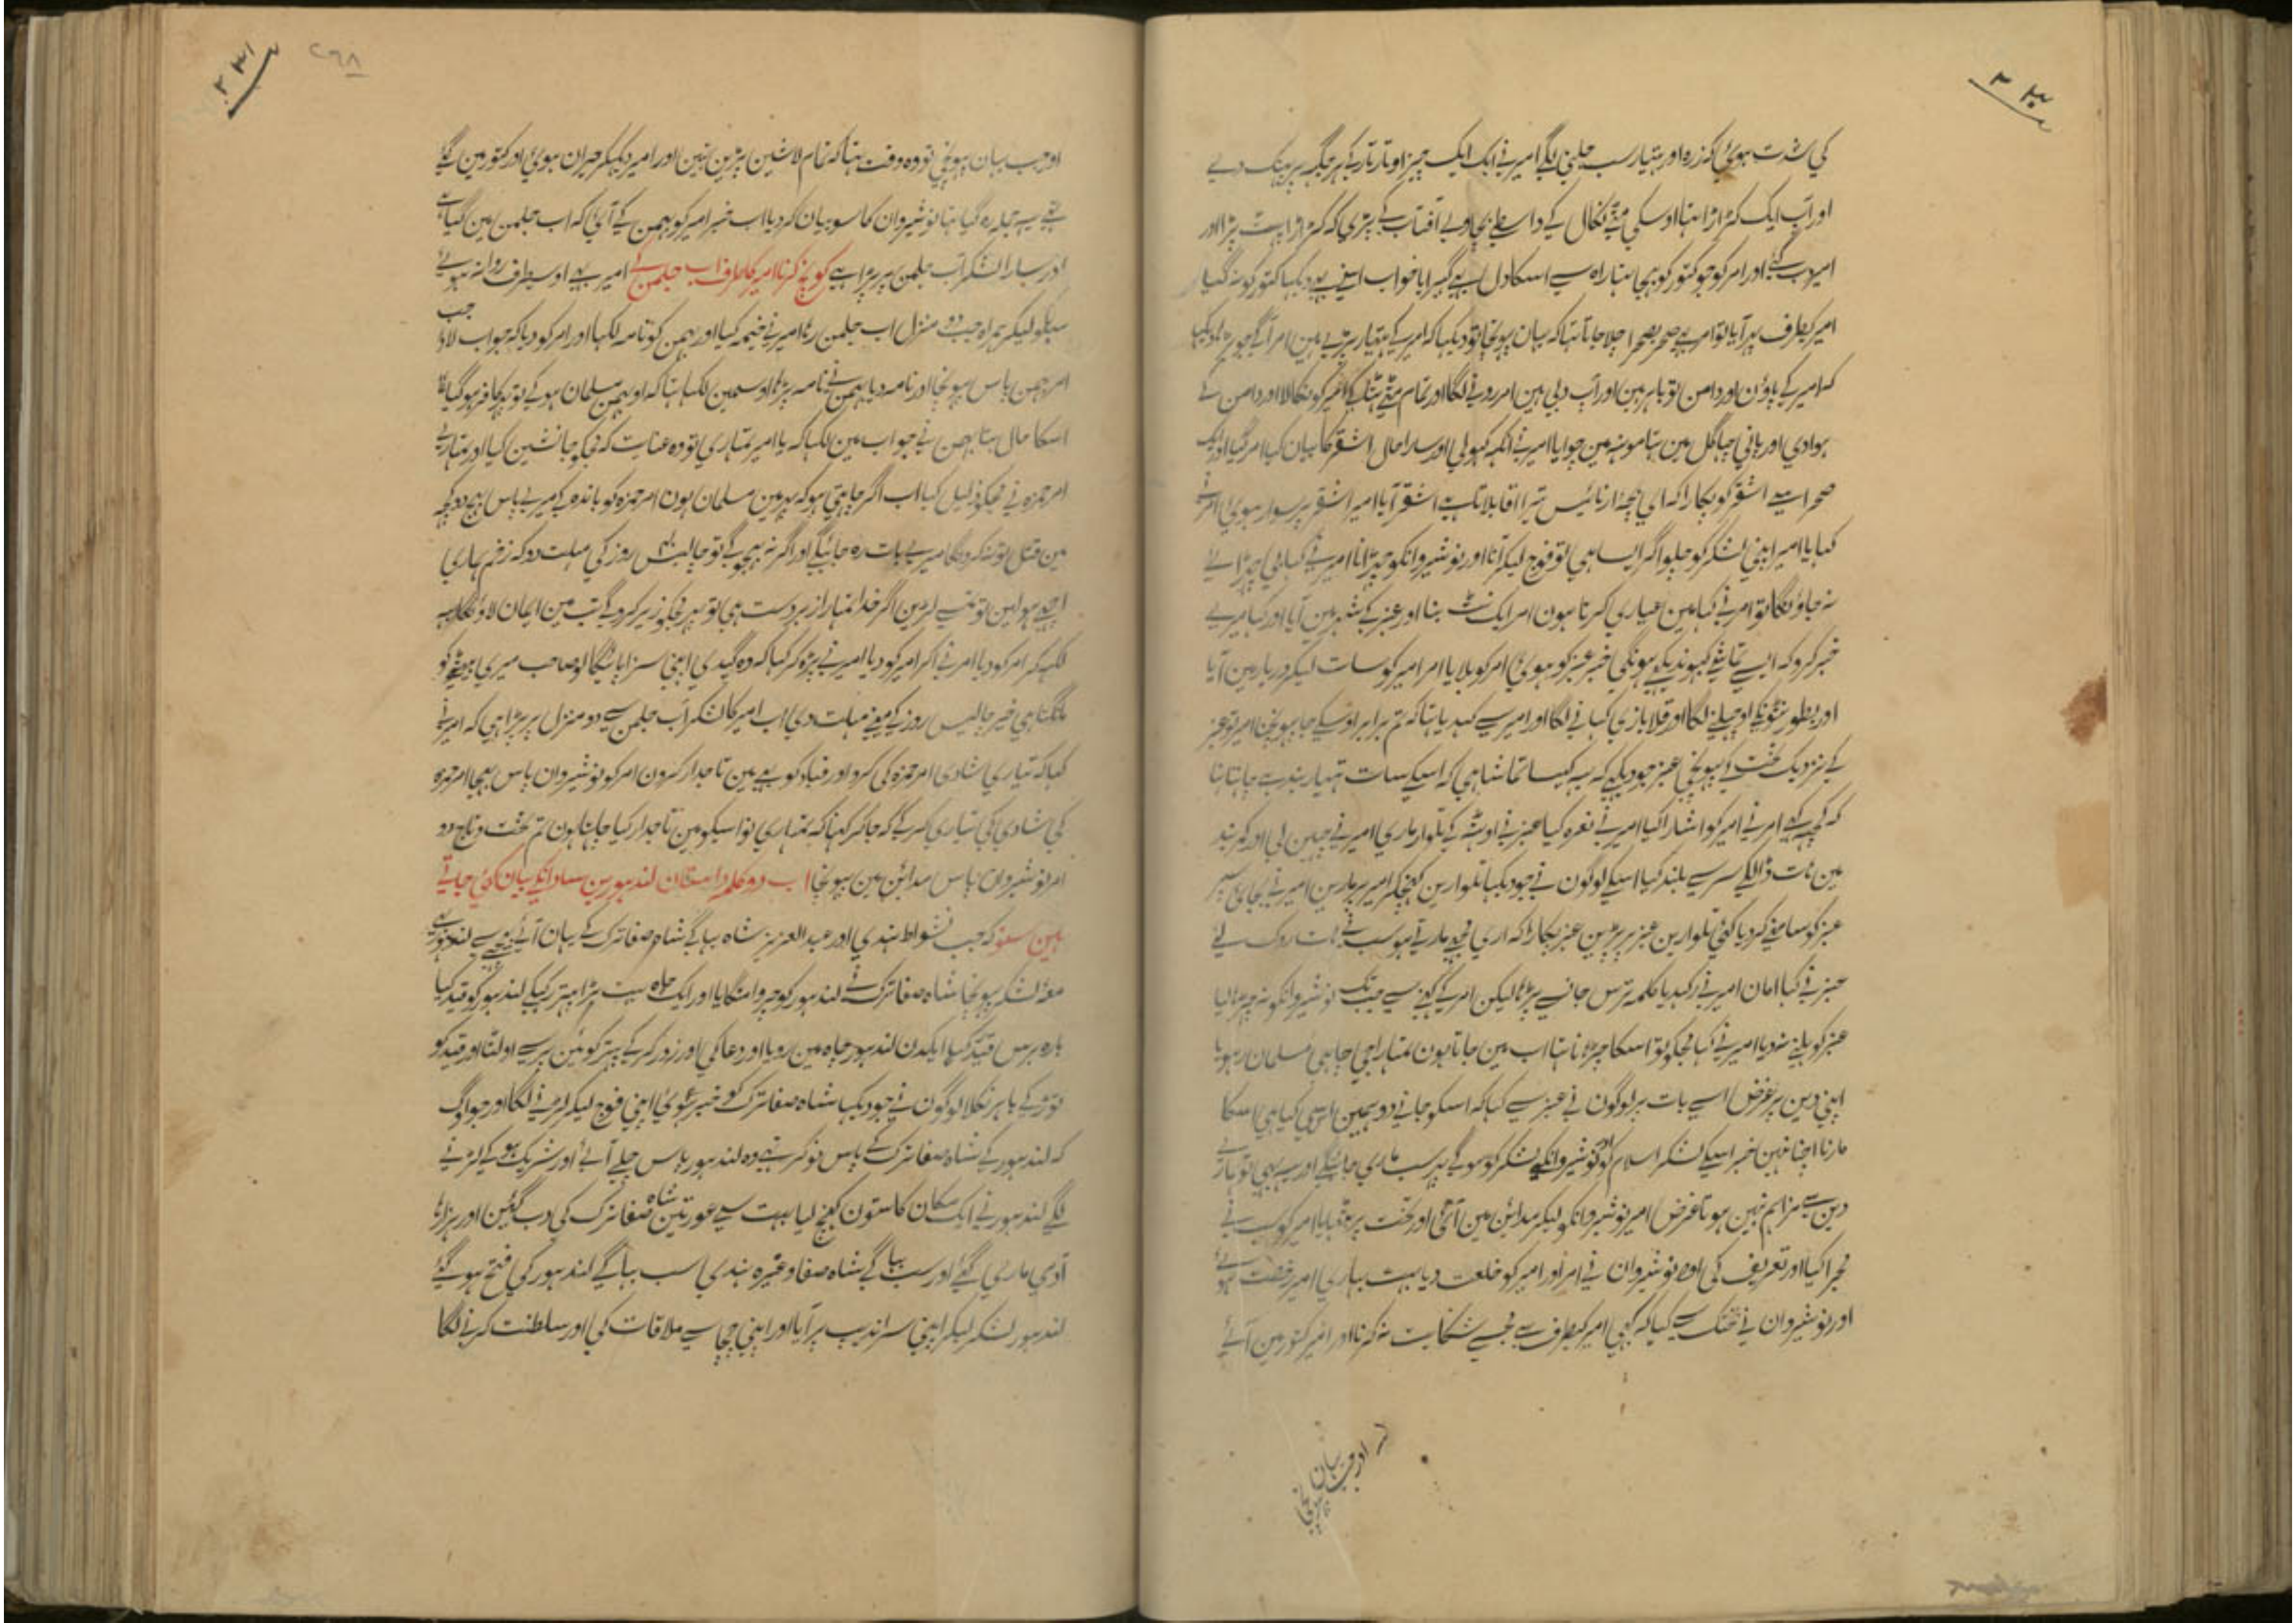 ۲۳۰
کی شدت ہوئی کہ زرہ اور ہتیار سب جلنی لگے امیر نے ایک ایک چیز اوتار تار کے ہر جگہ پر پھینک دیے
اور آب ایک کڑاڑا تھا اوسکی مٹی نکال کے واسطے اوپر آفتاب کے پڑی کہ کڑاڑا پھٹ پڑا اور
امیر دب گئے اور امر کو جو کتور کو بھیجا تھا راہ سے اسکا دل گھبرایا خواب اپنے بد دیکھا کتور کو نہ گیا
امیر کیطرف پھر آیا تو امر بھی صحرا بصحرا چلا جاتا تھا کہ یہان پہونچا تو دیکھا کہ امیر کے ہتیار پڑے ہین امر آگے جو بڑا دیکھا
کہ امیر کے پاؤن اور دامن تو باہر ہین اور آپ دبی ہین امر رونے لگا اور تمام مٹی ہٹا کے امیر کو نکالا اور دامن سے
ہوا دی اور پانی چھاگل مین تھا مونہہ مین چوایا امیر نے انکہہ کھولی اور سارا حال اشقر کا بیان کیا امر گیا اور ایک
صحرا سے اشقر کو پکارا کہ ای بچہ ارنائیس تیرا آقا بلاتا ہے اشقر آیا امیر اشقر پر سوار ہوئی امر نے
کہا یا امیر اپنی لشکر کو چلو اگر ایسا ہی تو فوج لیکر آنا اور نوشیروانکو چھڑانا امیر نے کہا بی چھڑائے
نہ جاؤنگا تو امر نے کہا مین عیاری کرتا ہون امر ایک نٹ بنا اور عنبر کے شہر مین آیا اور کہا میرے
خبر کرو کہ ایسے تماشے کبھو ندیکھے ہونگی خبر عنبر کو ہوئی امر کو بلایا امر امیر کو سات لیکر دربار مین آیا
اور بطور نٹونکے اوچھلنے لگا اور قلابازی کھانے لگا اور امیر سے کہدیا تھا کہ تم برابر اوسکے جا پہونچنا امیر تو عنبر
کے نزدیک تخت کے پہونچے عنبر جو دیکھے کہ یہ کیسا تماشا ہی کہ اسکے سات ہتیار بند ہے چاہتا تھا
کہ کچھ کہے امر نے امیر کو اشارا کیا امیر نے نعرہ کیا عنبر نے اوٹھہ کے تلوار ماری امیر نے چھین لی اور کمربند
مین ہات ڈالکے سر سے بلند کیا اسکے لوگون نے جو دیکھا تلوارین کھنچکر امیر پر مارین امیر نے بجای سپر
عنبر کو سامنے کر دیا کئی تلوارین عنبر پر پڑین عنبر پکارا کہ ارے مجھے مارتے ہو سب نے ہات روک لئے
عنبر نے کہا امان امیر نے رکھدیا کلمہ ترس جانسے پڑھا لیکن امیر کے کہنے سے جب تک نوشیروانکو نہ چھڑا لیا
عنبر کو ہلنے ندیا امیر نے کہا مجکو تو اسکا چھڑانا تھا اب مین جاتا ہون تمہارا جی چاہی مسلمان رہو یا
اپنی دین پر غرض اسے بات پر لوگون نے عنبر سے کہا کہ اسکو جانے دو ہمین اس سی کیا ہی اسکا
مارنا اچھا نہین خبر اسکے لشکر اسلام کو اور نوشیروانکے لشکر کو ہوگی پھر سب ماری جائینگے اور یہ بھی تو ہمارے
دین سے مزاہم نہین ہوتا غرض امیر نوشیروانکو لیکر مدائن مین آئی اور تخت پر بٹھایا امیر کو سب نے
مجرا کیا اور تعریف کی اور نوشیروان نے امر اور امیر کو خلعت دیا بہت بھاری امیر رخصت ہوئے
اور نوشیروان نے بختک سے کہا کہ کبھی امیر کیطرف سے مجسے شکایت نہ کرنا اور امیر کتور مین آئے
اور جب یہان پہونچے
۲۳۱
۲۶۸
اور جب یہان پہونچی تو وہ وقت تھا کہ تمام لاشین پڑین تہین اور امیر دیکھکر حیران ہوئی اور کتور مین گئے
جتنے یہ حیلہ رہ گیا تھا نوشیروان کا سو بیان کر دیا اب خبر امیر کو بہمن کے آئی کہ اب جلمن مین گیا ہے
اور سارا لشکر آب جلمن پر پڑا ہے کوچ کرنا امیر کا طرف آب جلمن کے امیر بھے اوسطرف روانہ ہوئے
سبکو لیکر ہمراہ جب دو منزل اب جلمن رہا امیر نے خیمہ کیا اور بہمن کو نامہ لکھا اور امر کو دیا کہ جواب لادا جب
امر بہمن پاس پہونچا اور نامہ دیا بہمن نے نامہ پڑھا اوسمین لکھا تھا کہ او بہمن مسلمان ہو کے تو پھر کافر ہو گیا تھا
اسکا حال بتا بہمن نے جواب مین لکھا کہ یا امیر تمہاری تو وہ عنایت کہ مجکو جانشین کیا اور تمہارے
امر حمزہ نے مجکو ذلیل کیا اب اگر چاہتی ہو کہ پھر مین مسلمان ہون امر حمزہ کو باندہ کے میرے پاس بھیج دو کچھ
مین قتل تو نہ کرونگا میرے بات رہ جائیگی اور اگر نہ بھیجوگے تو چالیس روز کی مہلت دو کہ زخم ہاری
اچھے ہولین تو تمسے لڑین اگر خدا تمہارا زبردست ہی تو پھر مجکو زیر کروگے تب مین ایمان لاؤنگا یہ
لکھکر امر کو دیا امر نے آکر امیر کو دیا امیر نے پڑہ کر کہا کہ وہ گیدی اپنی سزا پائیگا لو صاحب میری بیٹے کو
مانگتا ہی خیر چالیس روز کے مینے مہلت دی اب امیر کا لشکر آب جلمن سے دو منزل پر پڑا ہی کہ امیر نے
کہا کہ تیاری شادی امر حمزہ کی کرو اور قباد کو بھے مین تاجدار کرون امر کو نوشیروان پاس بھیجا امر حمزہ
کی شادی کی تیاری کر کے کہ جا کر کہنا کہ تمہاری نواسیکو مین تاجدار کیا چاہتا ہون تم تخت و تاج دو
امر نوشیروان پاس مدائن مین پہونچا اب دو کلمہ داستان لندہور بن سعدانکے بیان کئی جاتے
ہین سنو کہ جب نشواط ہندی اور عبدالعزیز شاہ بھاگے شاہ صفا ترک کے یہان آئے پیچھے سے لندہور بھے
معہ لشکر پہونچا شاہ صفا ترک نے لندہور کو چروا منگایا اور ایک چاہ بہت بڑا پتھر رکھکے لندہور کو قید کیا
بارہ برس قید رکھا ایکدن لندہور چاہ مین رویا اور دعا کی اور زور کر کے پتھر کو مین پر سے اولٹا اور قید کو
توڑ کے باہر نکلا لوگون نے جو دیکھا شاہ صفا ترک کو خبر ہوئی اپنی فوج لیکر لڑنے لگا اور جو لوگ
کہ لندہور کے شاہ صفا ترک کے پاس نوکر تہے وہ لندہور پاس چلے آئے اور شریک ہو کے لڑنے
لگے لندہور نے ایک مکان کا ستون کھنچ لیا بہت سے عورتین شاہ صفا ترک کی دب گئین اور ہزارہا
آدمی ماری گئے اور سب بھاگے شاہ صفا و غیرہ ہندی سب بھاگے لندہور کی فتح ہو گئے
لندہور لشکر لیکر اپنی سراندیب پر آیا اور اپنی چچا سے ملاقات کی اور سلطنت کرنے لگا